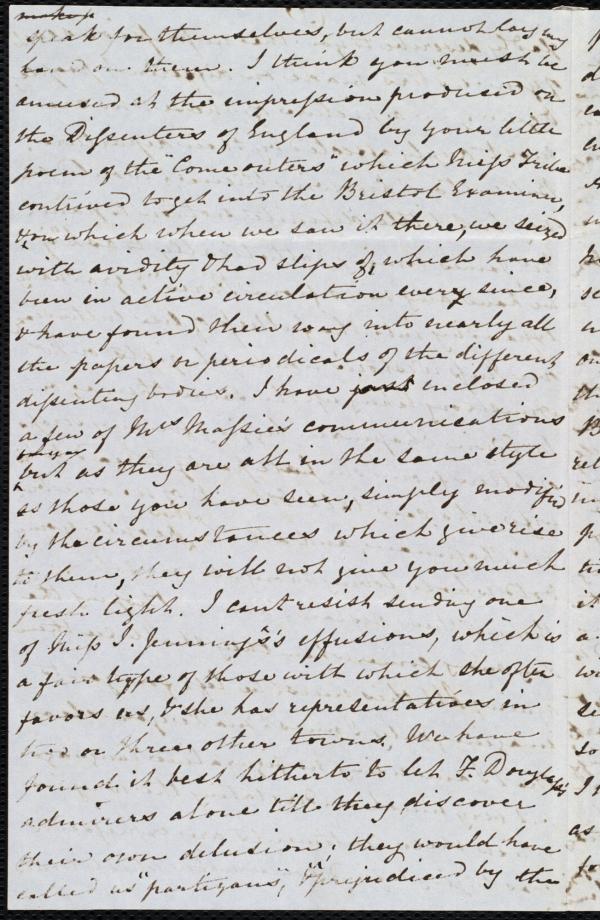 speak for themselves, but cannot lay my
hand on them. I think you must be
amused at the impression produced on
the Dissenters of England by your little
poem of the "Come outers" which Miss
contrived to get into the Bristol Examiner,
& on which when we saw it there, we seized
with avidity & had slips of, which have
been in active circulation every since,
& have found their way into nearly all
the papers or periodicals of the different
dissenting bodies. I have just inclosed
a few of Mrs Massie's communications
but as they are all in the same style
as those you have seen, simply modified
by the circumstances which give rise
to them, they will not give you much
fresh light. I can't resist sending one
of Miss I. Jennings's effusions, which is
a fair type of those with which she often
favors us, & she has representatives in
two or three other towns. We have
found it best hitherto to let F. Douglass's
admirers alone till they discover
their own delusion; they would have
called us "partizans", & "prejudiced by the